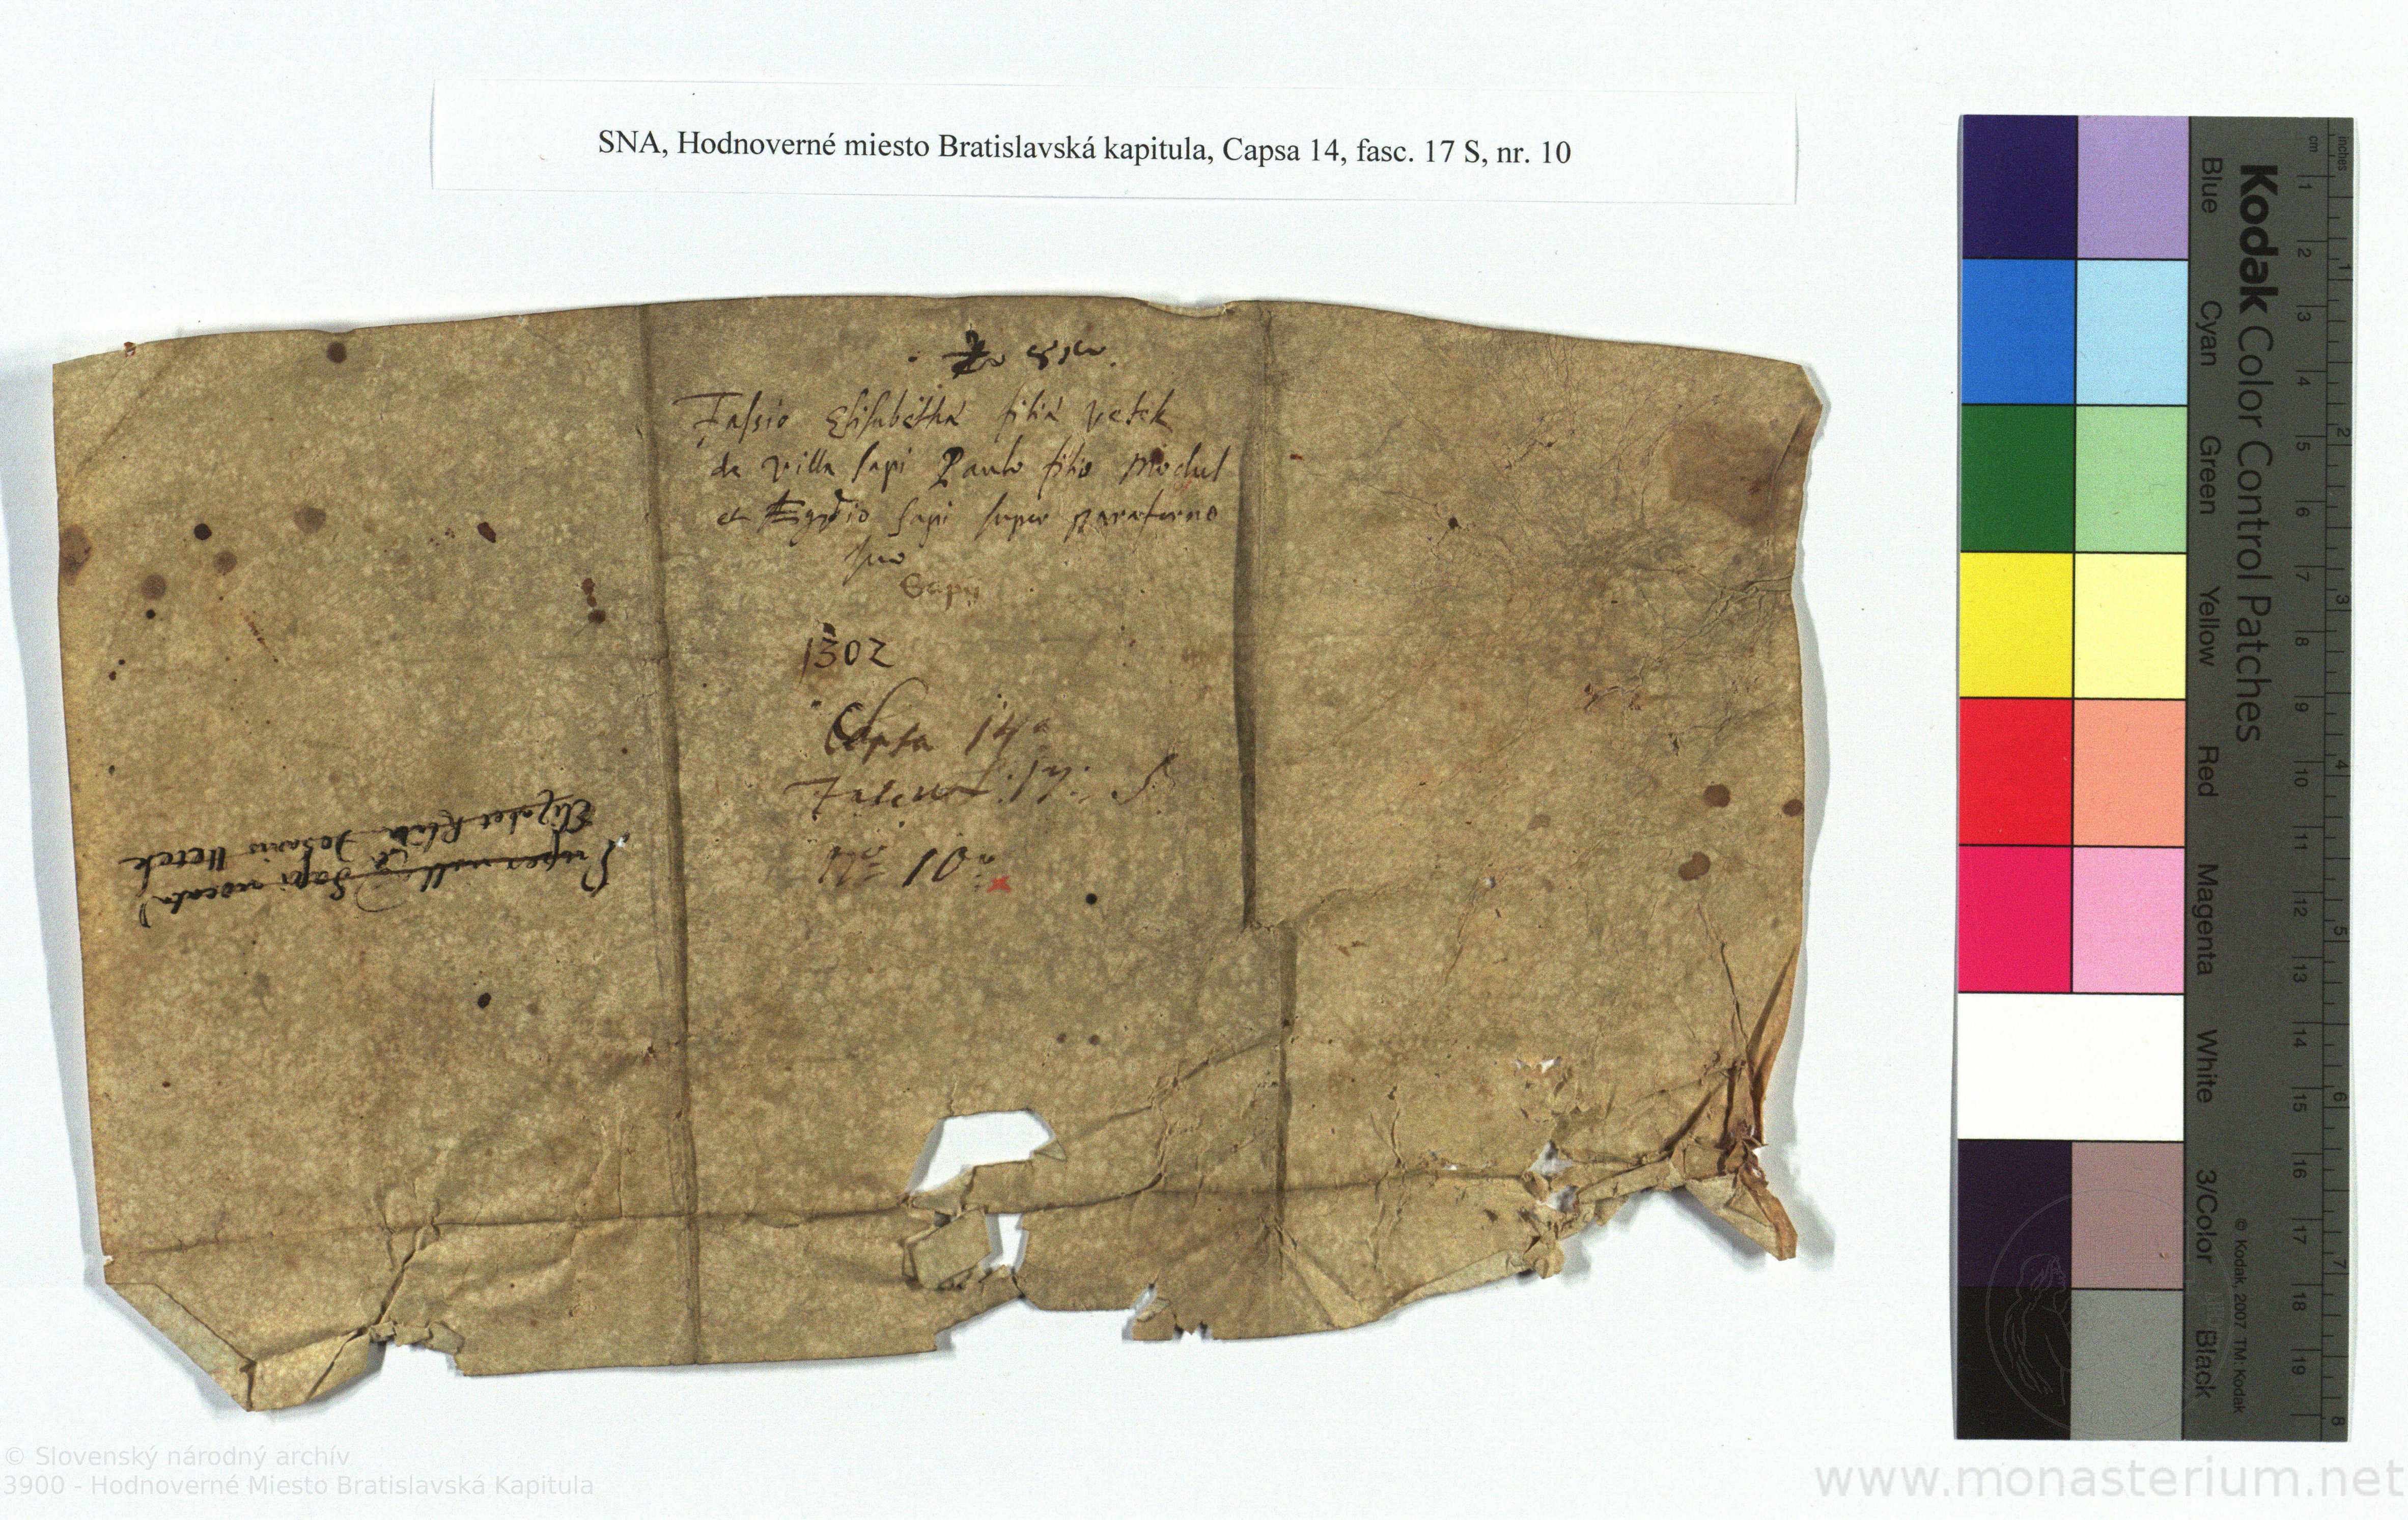 SNA, Hodnoverné miesto Bratislavská kapitula, Capsa 14, fasc. 17 S, nr. 10
Fassio Elisabetha filia Vetek
de villa Sapi Paulo filio Modul
et Egydio Sapi super paraferno
suo
Sapi
1302
Capsa 14a
Fascic. 17. S
Nro 10
Super villa Sapi vocata
Elizabet filia Vetek
Kodak Color Control Patches
Blue Cyan Green Yellow Red Magenta White 3/Color Black
cm 1 2 3 4 5 6 7 8 9 10 11 12 13 14 15 16 17 18 19
inches 1 2 3 4 5 6 7 8
© Kodak, 2007 TM: Kodak
© Slovenský národný archív
3900 - Hodnoverné Miesto Bratislavská Kapitula
www.monasterium.net